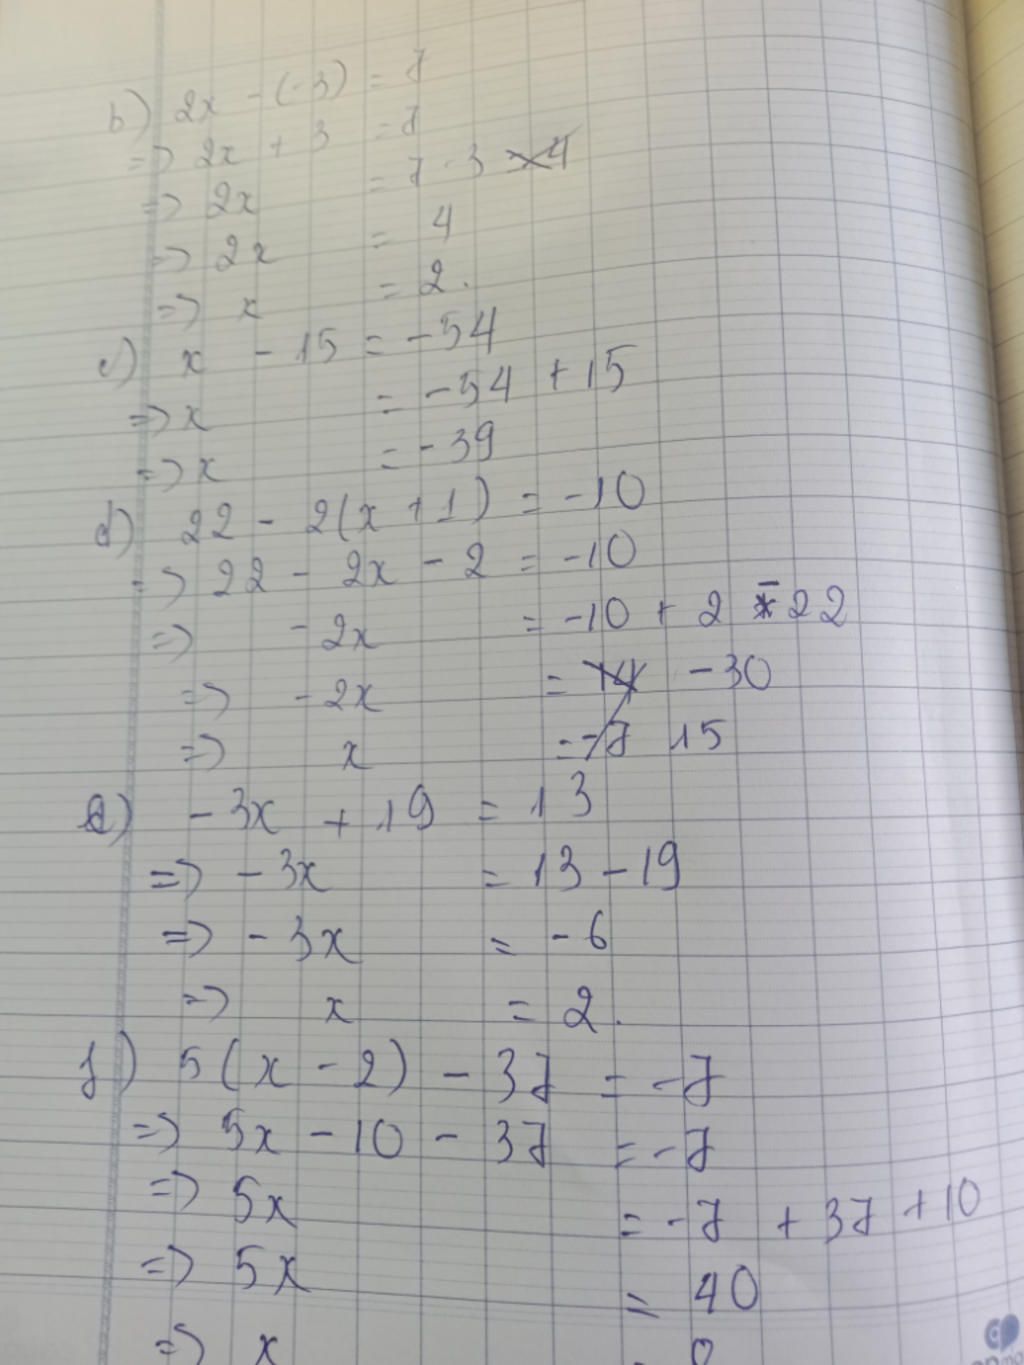 b) 2x - (-3) = 7
=> 2x + 3 = 7
=> 2x = 7 - 3
=> 2x = 4
=> x = 2.
c) x - 15 = -54
=> x = -54 + 15
=> x = -39
d) 22 - 2(x + 1) = -10
=> 22 - 2x - 2 = -10
=> - 2x = -10 + 2 - 22
=> - 2x = -30
=> x = 15
e) - 3x + 19 = 13
=> - 3x = 13 - 19
=> - 3x = - 6
=> x = 2.
f) 5(x - 2) - 37 = -7
=> 5x - 10 - 37 = -7
=> 5x = -7 + 37 + 10
=> 5x = 40
=> x =